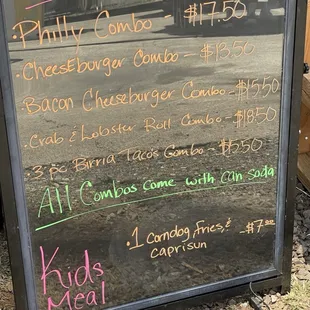 · Philly Combo - $17.50
· CheesEburger Combo - $13.50
· Bacon Cheeseburger Combo - $15.50
· Crab & Lobster Roll Combo - $18.50
· 3 pc Birria Tacos Combo - $15.50
All Combos come with can soda
· 1 Corndog, Fries, & $7.00
Caprisun
Kids
Meal